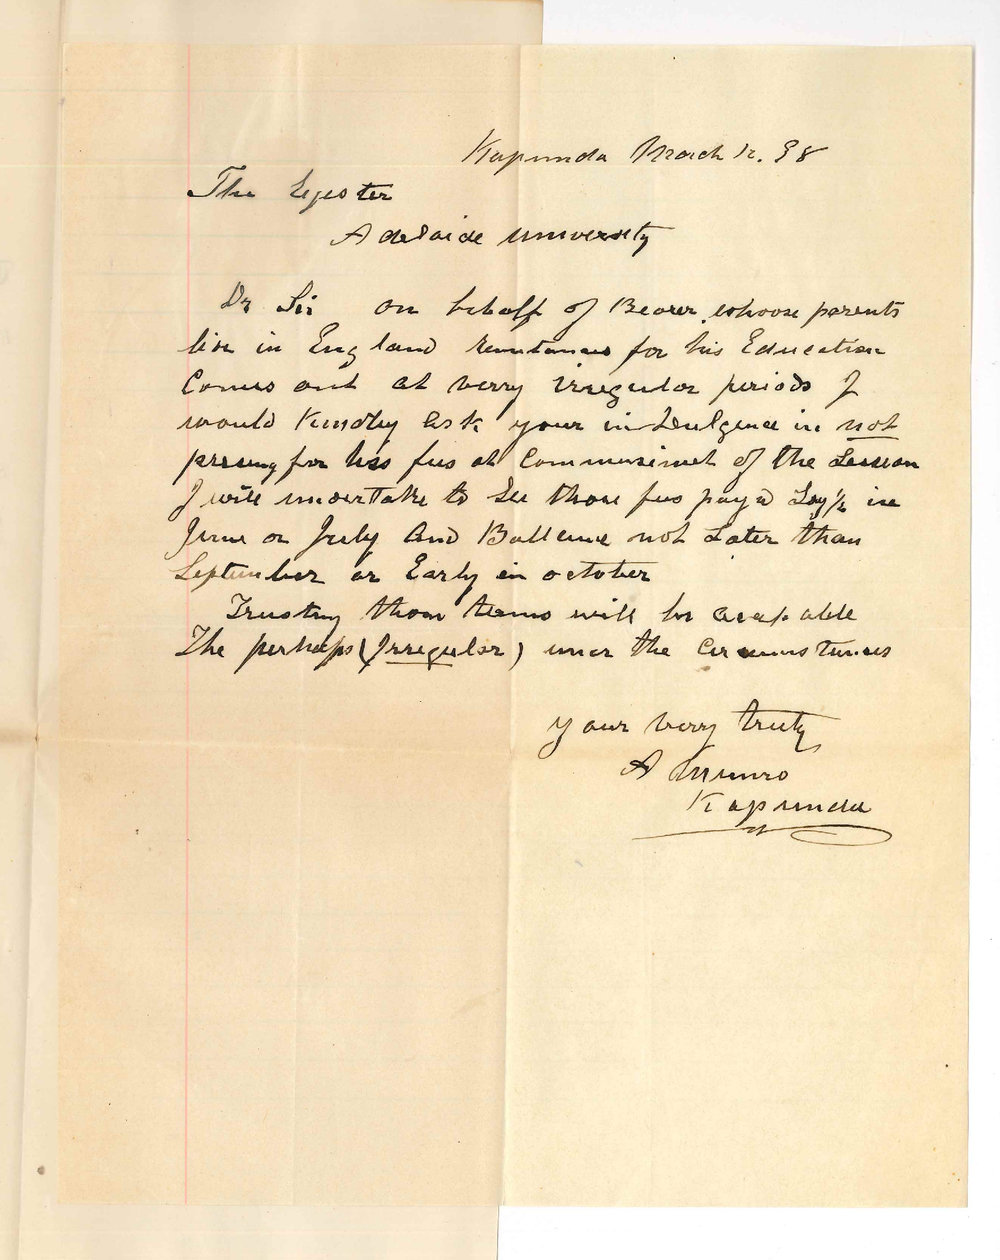 Kapunda March 12. 98
The Register
Adelaide University
Dr Sir on behalf of Bearer whoose parents
live in England remitances for his Education
Comes out at verry irregular periods I
would Kindley ask your indulgence in not
pressing for his fees at Commensment of the Session
I will undertake to See those fees payd Say ½ in
June or July And Ballance not Later than
September or Early in october
Trusting those terms will be acceptable
The perhaps (Irregular) under the Circumstances
your verry truly
A Munro
Kapunda